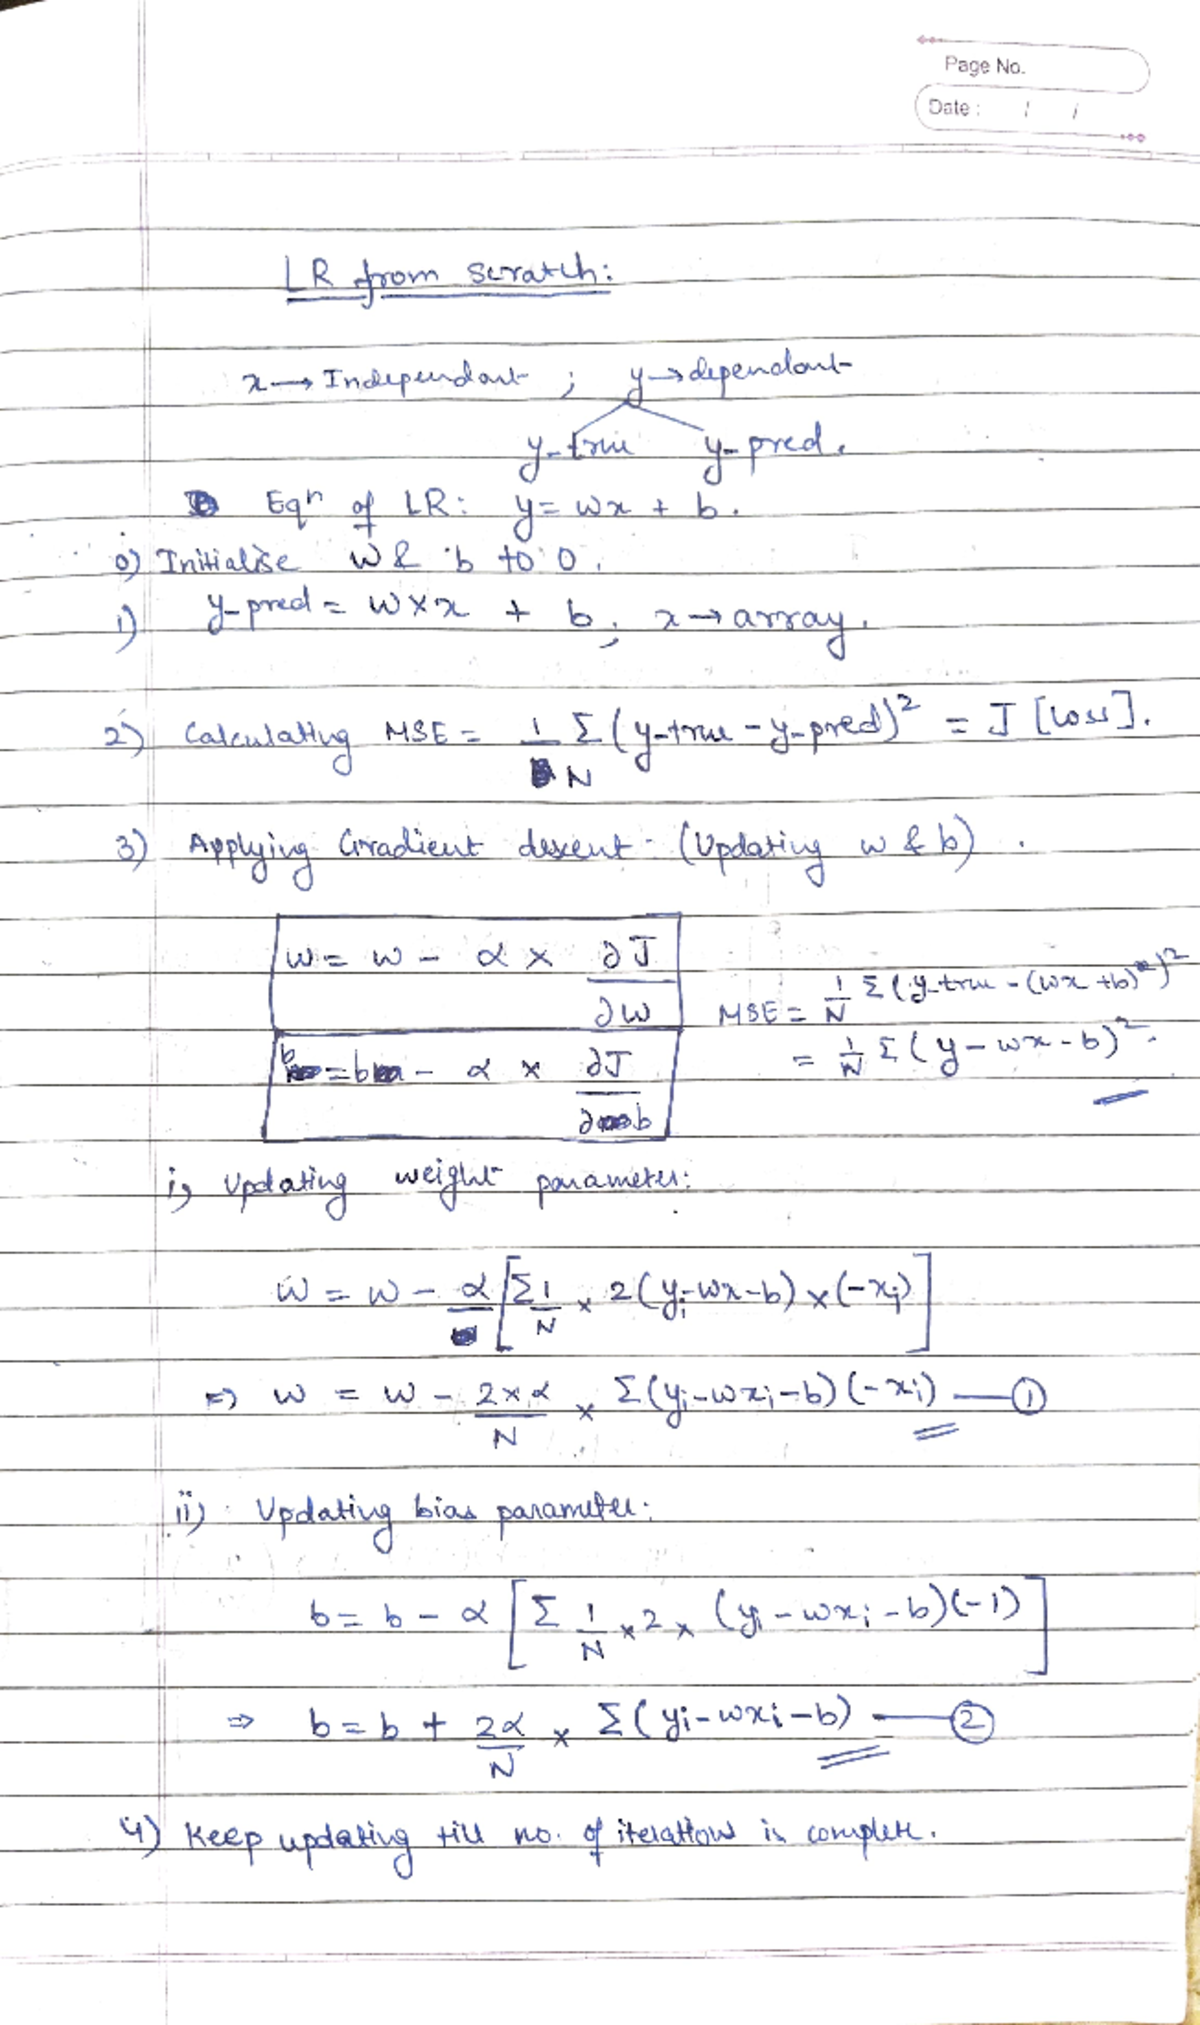 Page No.
Date : / /
LR from scratch:
x → Independant ; y → dependant
y-true y-pred.
Eqⁿ of LR: y = wx + b.
0) Initialise w & b to 0.
1) y-pred = w × x + b ; x → array.
2) Calculating MSE = 1/N Σ (y-true - y-pred)² = J [loss].
3) Applying Gradient descent (Updating w & b) .
w = w - α × ∂J/∂w
MSE = 1/N Σ (y-true - (wx + b))²
= 1/N Σ (y - wx - b)².
b = b - α × ∂J/∂b
i) Updating weight parameter:
w = w - α [Σ 1/N × 2 (yi - wx - b) × (-xi)]
⇒ w = w - 2×α/N × Σ (yi - wxi - b) (-xi) — ①
ii) Updating bias parameter:
b = b - α [Σ 1/N × 2 × (yi - wxi - b)(-1)]
⇒ b = b + 2α/N × Σ (yi - wxi - b) — ②
4) Keep updating till no. of iteration is complete.